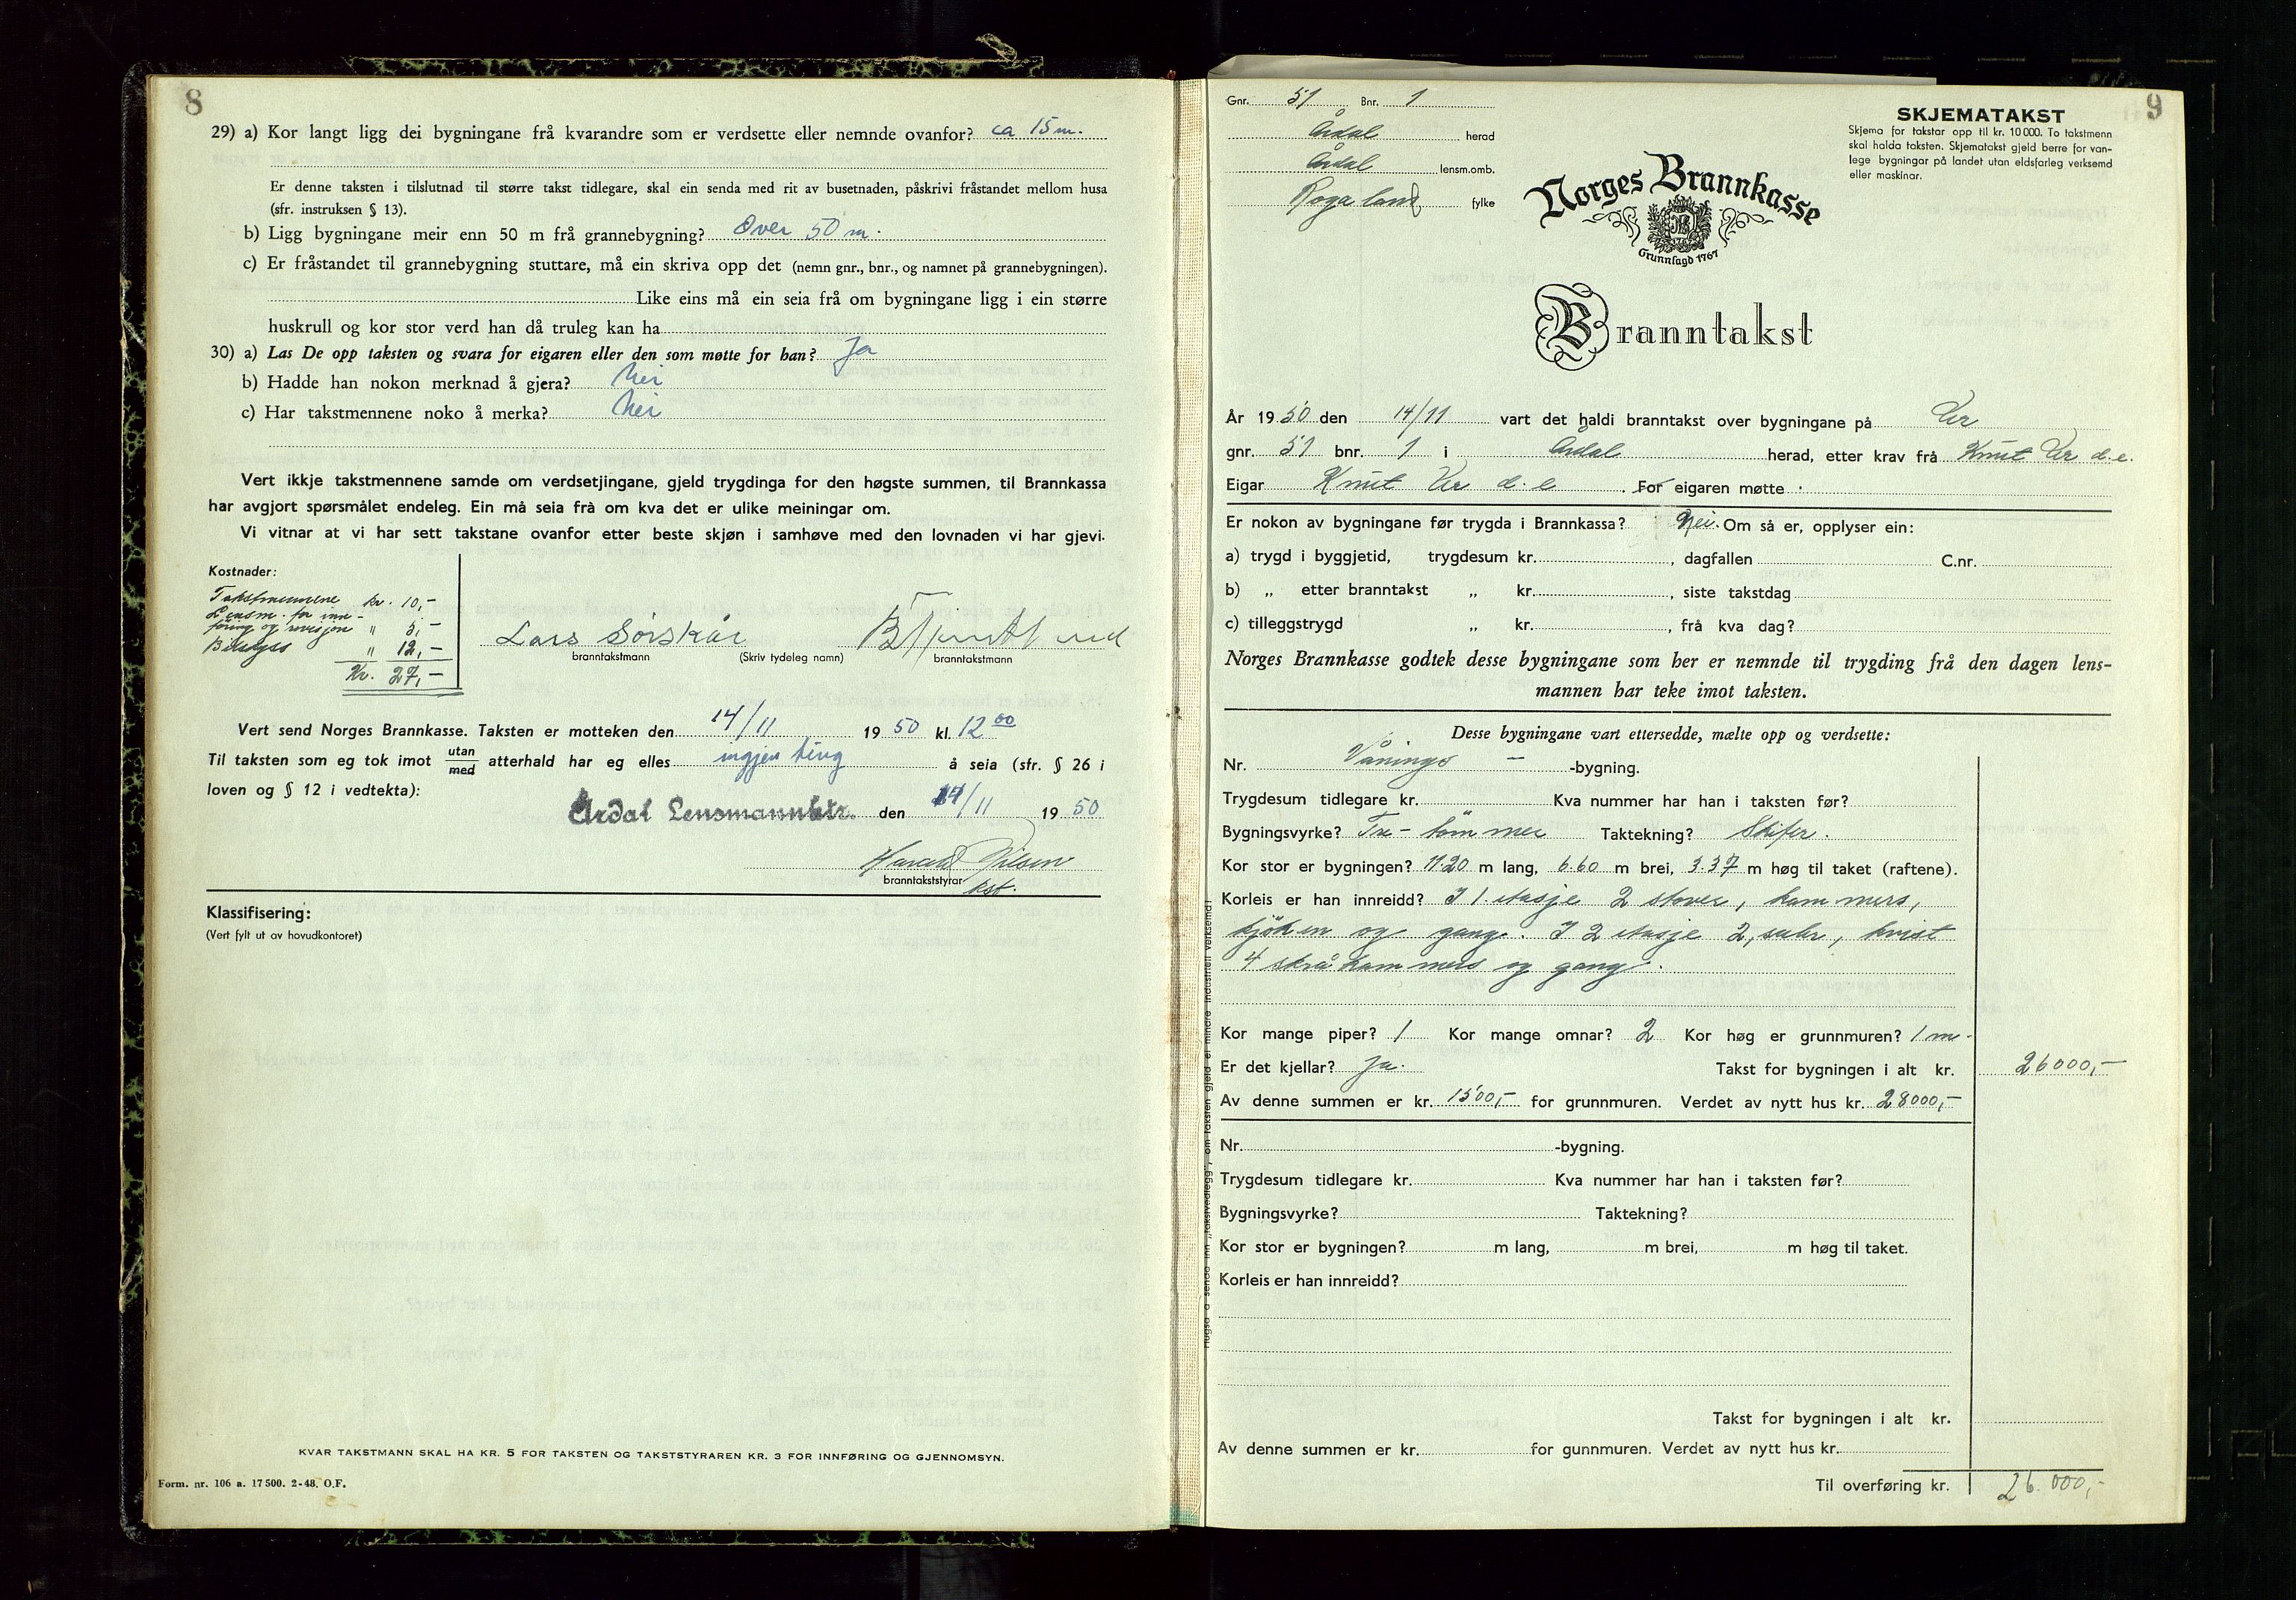 8
29) a) Kor langt ligg dei bygningane frå kvarandre som er verdsette eller nemnde ovanfor? ca 15 m.
Er denne taksten i tilslutnad til større takst tidlegare, skal ein senda med rit av busetnaden, påskrivi fråstandet mellom husa
(sfr. instruksen § 13).
b) Ligg bygningane meir enn 50 m frå grannebygning? Over 50 m.
c) Er fråstandet til grannebygning stuttare, må ein skriva opp det (nemn gnr., bnr., og namnet på grannebygningen).
Like eins må ein seia frå om bygningane ligg i ein større
huskrull og kor stor verd han då truleg kan ha
30) a) Las De opp taksten og svara for eigaren eller den som møtte for han? Ja
b) Hadde han nokon merknad å gjera? Nei
c) Har takstmennene noko å merka? Nei
Vert ikkje takstmennene samde om verdsetjingane, gjeld trygdinga for den høgste summen, til Brannkassa
har avgjort spørsmålet endeleg. Ein må seia frå om kva det er ulike meiningar om.
Vi vitnar at vi har sett takstane ovanfor etter beste skjøn i samhøve med den lovnaden vi har gjevi.
Kostnader:
Takstmennene kr. 10,-
Lensm. for inn-
føring og revisjon " 5,-
Bilskyss " 12,-
Kr. 27,-
Lars Sørskår
branntakstmann (Skriv tydeleg namn) branntakstmann
Vert send Norges Brannkasse. Taksten er motteken den 14/11 1950 kl. 12 00
Til taksten som eg tok imot utan/med atterhald har eg elles ingjen ting å seia (sfr. § 26 i
loven og § 12 i vedtekta):
Årdal Lensmannktr. den 14/11 1950
Harald Nilsen
branntakststyrar kst.
Klassifisering:
(Vert fylt ut av hovudkontoret)
KVAR TAKSTMANN SKAL HA KR. 5 FOR TAKSTEN OG TAKSTSTYRAREN KR. 3 FOR INNFØRING OG GJENNOMSYN.
Form. nr. 106 a. 17500. 2-48. O.F.
9
Gnr. 51 Bnr. 1
Årdal herad
Årdal lensm.omb.
Rogaland fylke
SKJEMATAKST
Skjema for takstar opp til kr. 10 000. To takstmenn
skal halda taksten. Skjematakst gjeld berre for van-
lege bygningar på landet utan eldsfarleg verksemd
eller maskinar.
Norges Brannkasse
Grunnlagd 1767
Branntakst
År 1950 den 14/11 vart det haldi branntakst over bygningane på Ur
gnr. 51 bnr. 1 i Årdal herad, etter krav frå Knut Ur d.e.
Eigar Knut Ur d.e. For eigaren møtte
Er nokon av bygningane før trygda i Brannkassa? Nei. Om så er, opplyser ein:
a) trygd i byggjetid, trygdesum kr. , dagfallen C.nr.
b) „ etter branntakst „ kr. , siste takstdag
c) tilleggstrygd „ kr. , frå kva dag?
Norges Brannkasse godtek desse bygningane som her er nemnde til trygding frå den dagen lens-
mannen har teke imot taksten.
Desse bygningane vart ettersedde, mælte opp og verdsette:
Nr. Vånings - -bygning.
Trygdesum tidlegare kr. Kva nummer har han i taksten før?
Bygningsvyrke? Tre-tømmer Taktekning? Skifer.
Kor stor er bygningen? 11.20 m lang, 6.60 m brei, 3.37 m høg til taket (raftene).
Korleis er han innreidd? I 1. etasje 2 stover, kammers,
kjøken og gang. I 2 etasje 2, salar, kvist
4 skråkammers og gang.
Kor mange piper? 1 Kor mange omnar? 2 Kor høg er grunnmuren? 1 m.
Er det kjellar? Ja. Takst for bygningen i alt kr. 26000,-
Av denne summen er kr. 1500,- for grunnmuren. Verdet av nytt hus kr. 28000,-
Nr. -bygning.
Trygdesum tidlegare kr. Kva nummer har han i taksten før?
Bygningsvyrke? Taktekning?
Kor stor er bygningen? m lang, m brei, m høg til taket.
Korleis er han innreidd?
Takst for bygningen i alt kr.
Av denne summen er kr. for gunnmuren. Verdet av nytt hus kr.
Til overføring kr. 26.000,-